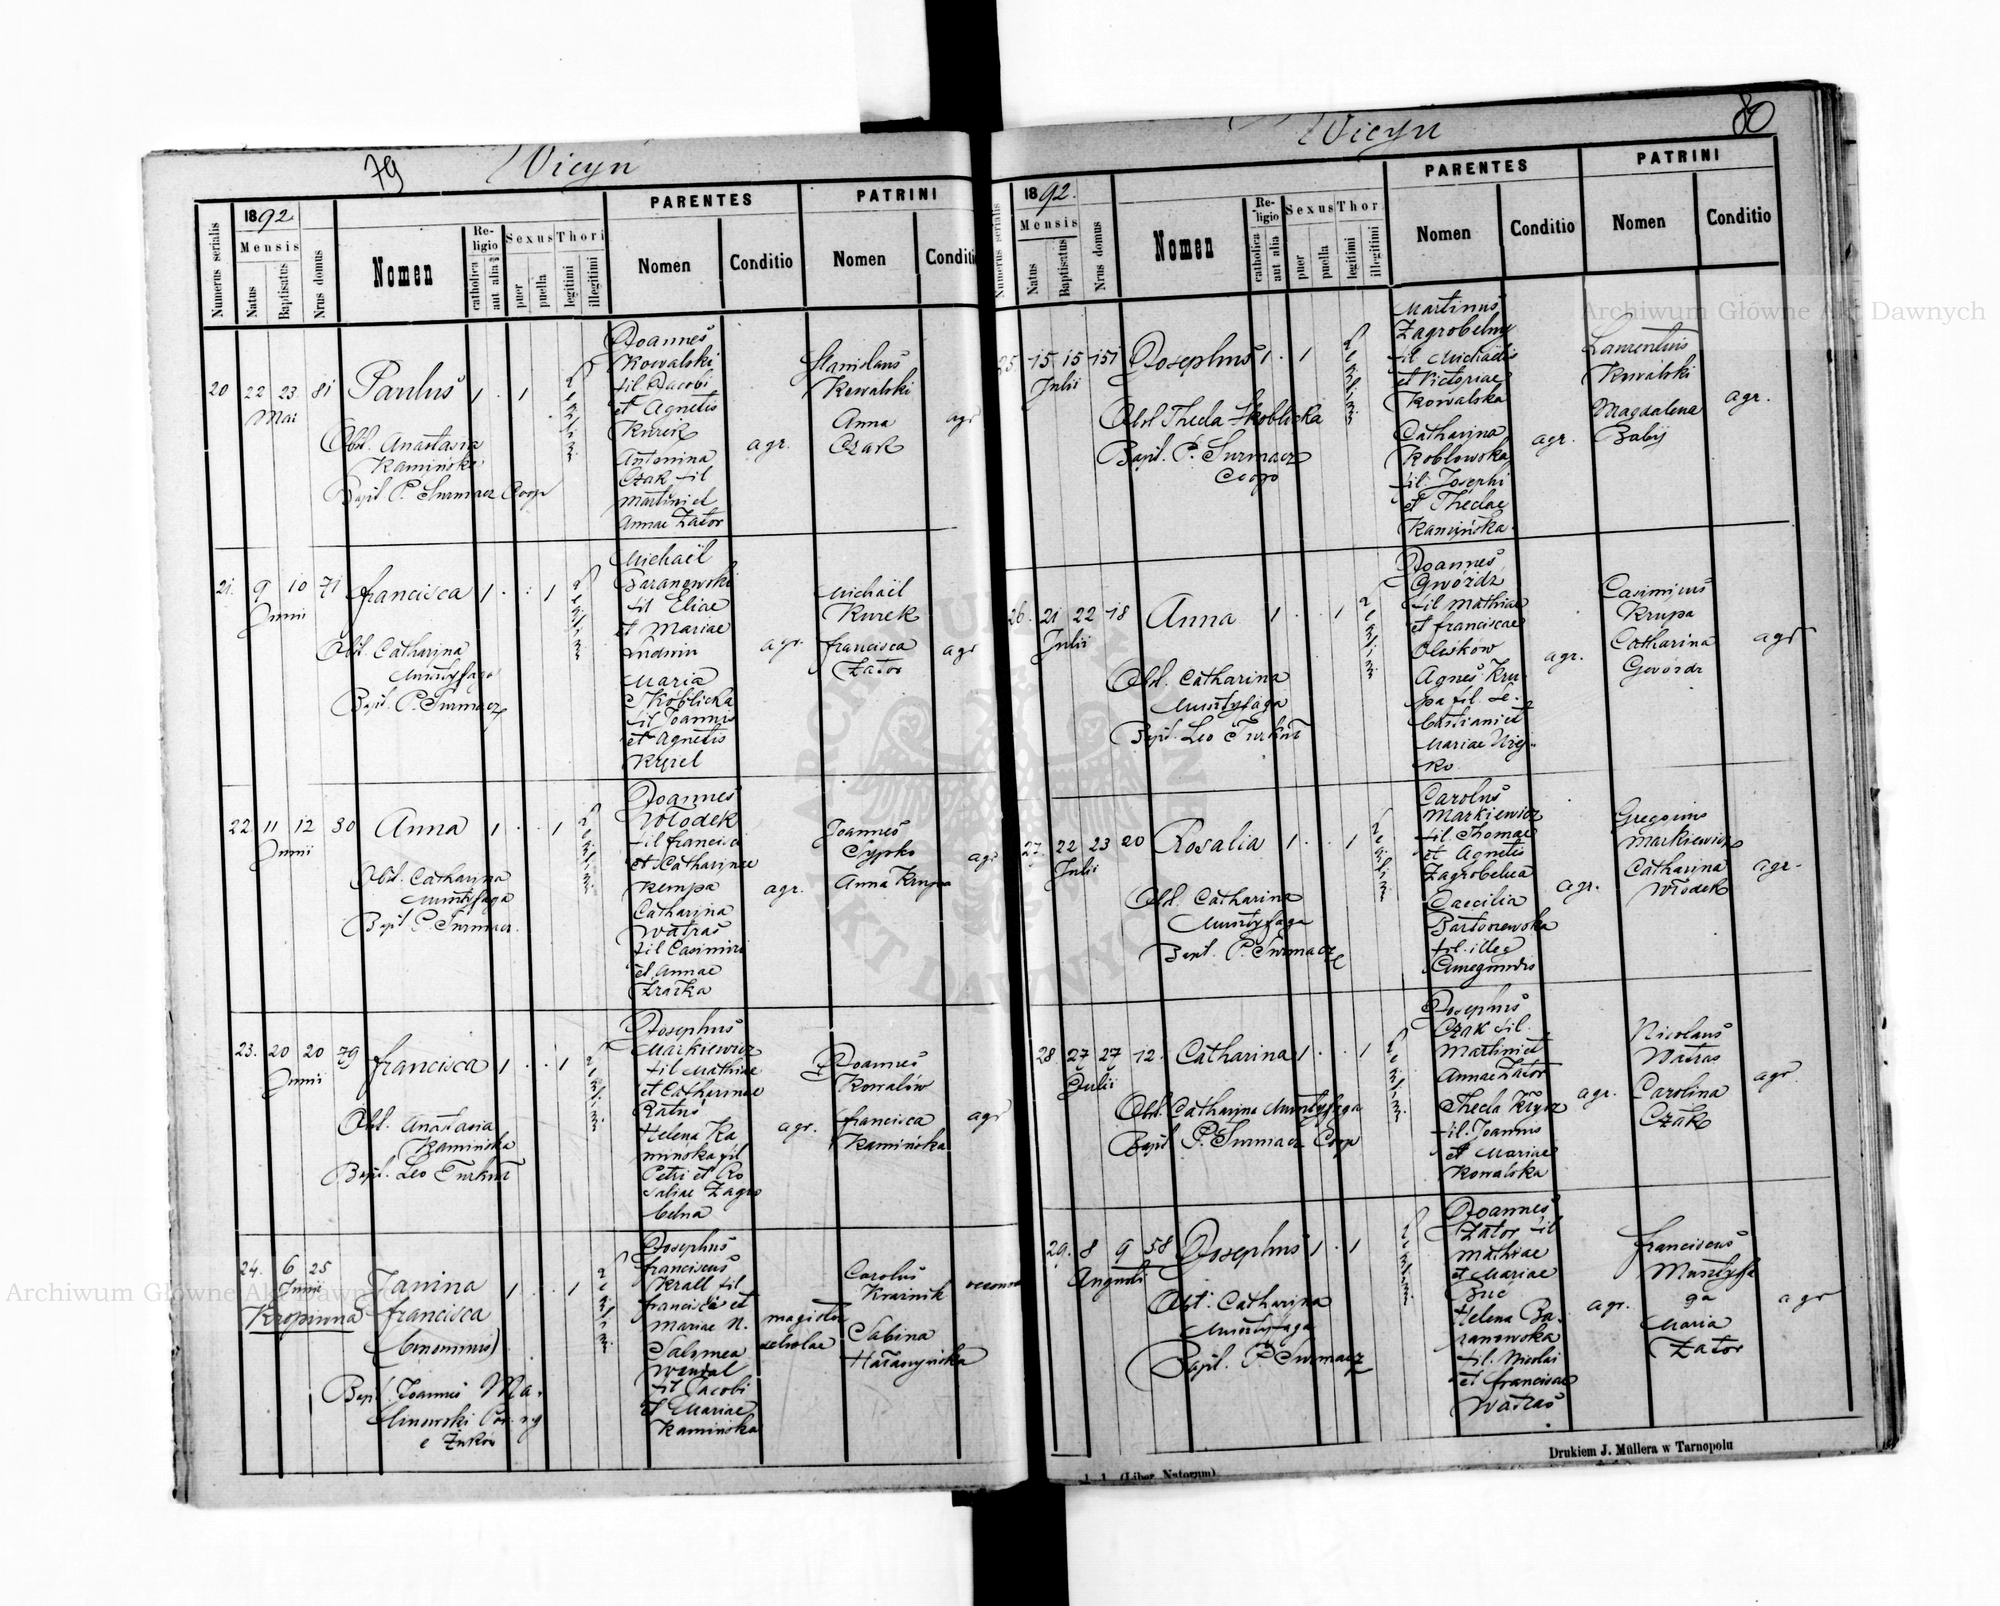 79
Vicyn
PARENTES
PATRINI
Numerus serialis
1892
Mensis
Natus
Baptisatus
Nrus domus
Nomen
Religio
catholica
aut alia
Sexus
puer
puella
Thori
legitimi
illegitimi
Nomen
Conditio
Nomen
Conditi
20 22 23 81 Paulus 1 1
Mai
Obst. Anastasia
Kamińska
Bapt P. Surmacz Coop
Joannes
Kowalski
fil Jacobi
et Agnetis
Kurek
Antonina
Czak fil
Martini et
Annae Zator
agr.
Stanislaus
Kowalski
Anna
Czak
agr
21. 9 10 71 Francisca 1 1
Junii
Obst. Catharina
Muntyfaga
Bapt. P. Surmacz
Michaël
Baranowski
fil Eliae
et Mariae
Ludwin
Maria
Skoblicka
fil Joannis
et Agnetis
agr.
Michaël
Kurek
Francisca
Zator
agr
22 11 12 30 Anna 1 1
Junii
Obst. Catharina
Muntyfaga
Bapt P. Surmacz.
Joannes
Wołodek
fil Francisci
et Catharinae
Kempa
Catharina
Watras
fil Casimiri
et Annae
agr.
Joannes
Sypko
Anna Krupa
agr
23. 20 20 79 Francisca 1 1
Junii
Obst. Anastasia
Kamińska
Bapt. Leo Turkuł
Josephus
Markiewicz
fil Mathiae
et Catharinae
Ratuś
Helena Ka
mińska fil
Petri et Ro
saliae Zagro
belna
agr.
Joannes
Kowalów
Francisca
Kamińska
agr
24. 6 25
Junii
Kropiwna
Janina
Francisca
(binominis)
1 1
Bapt. Joannes Ma-
linowski
Josephus
Franciscus
Krall fil
Francisci et
Mariae N.
Salomea
fil Jacobi
et Mariae
Kamińska
magister
scholae
Carolus
Krainik
Sabina
Hałanyńska
80
Vicyn
PARENTES
PATRINI
Numerus serialis
1892.
Mensis
Natus
Baptisatus
Nrus domus
Nomen
Religio
catholica
aut alia
Sexus
puer
puella
Thor.
legitimi
illegitimi
Nomen
Conditio
Nomen
Conditio
25. 15 15 151 Josephus 1 1
Julii
Obst Thecla Skoblicka
Bapt. P. Surmacz
Coop
Martinus
Zagrobelny
fil Michaëlis
et Victoriae
Kowalska
Catharina
Koblowska
fil. Josephi
et Theclae
Kamińska.
agr.
Laurentius
Kowalski
Magdalena
Babij
agr.
26. 21 22 18 Anna 1 1
Julii
Obst. Catharina
Muntyfaga
Bapt. Leo Turkuł
Joannes
Gwóźdz
fil Mathiae
et Franciscae
Oleśków
Agnes Kru-
pa fil. Se-
bastiani et
Mariae
agr.
Casimirus
Krupa
Catharina
Gwóźdz
agr
27. 22 23 20 Rosalia 1 1
Julii
Obst. Catharina
Muntyfaga
Bapt. P. Surmacz
Carolus
Markiewicz
fil. Thomae
et Agnetis
Zagrobelna
Caecilia
Bartoszewska
fil. illeg
Cunegundis
agr.
Gregorius
Markiewicz
Catharina
Włodek
agr.
28 27 27 12. Catharina 1 1
Julii
Obst. Catharina Muntyfaga
Bapt P. Surmacz Coop
Josephus
Czak fil.
Martini et
Annae Zator
Thecla Krysz
fil. Joannis
et Mariae
Kowalska
agr.
Nicolaus
Watras
Carolina
Czak
agr
29. 8 9 58 Josephus 1 1
Augusti
Obst. Catharina
Muntyfaga
Bapt. P Surmacz
Joannes
Zator fil
Mathiae
et Mariae
Buć
Helena Ba-
ranowska
fil. Nicolai
et Franciscae
Watras
agr.
Franciscus
Muntyfa
ga
Maria
Zator
agr
Drukiem J. Müllera w Tarnopolu
(Liber Natorum)
Archiwum Główne Akt Dawnych
Archiwum Główne Akt Dawnych